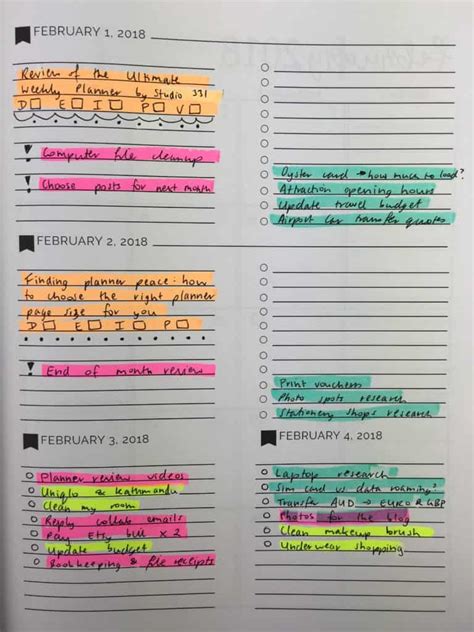 FEBRUARY 1, 2018
Review of the Ultimate
Weekly Planner by Studio 331
D E I P V
! Computer file cleanup
! Choose posts for next month
Oyster card → how much to load?
Attraction opening hours
Update travel budget
Airport car transfer quotes
FEBRUARY 2, 2018
Finding planner peace: how
to choose the right planner
page size for you
D E I P
! End of month review
Print vouchers
Photo spots research
Stationery shops research
FEBRUARY 3, 2018
Planner review videos
Uniqlo & Kathmandu
Clean my room
Reply collab emails
Pay Etsy bill x 2
Update budget
Bookkeeping & file receipts
FEBRUARY 4, 2018
Laptop research
Sim card vs data roaming?
Transfer AUD → EURO & GBP
Photos for the blog
Clean makeup brush
Underwear shopping